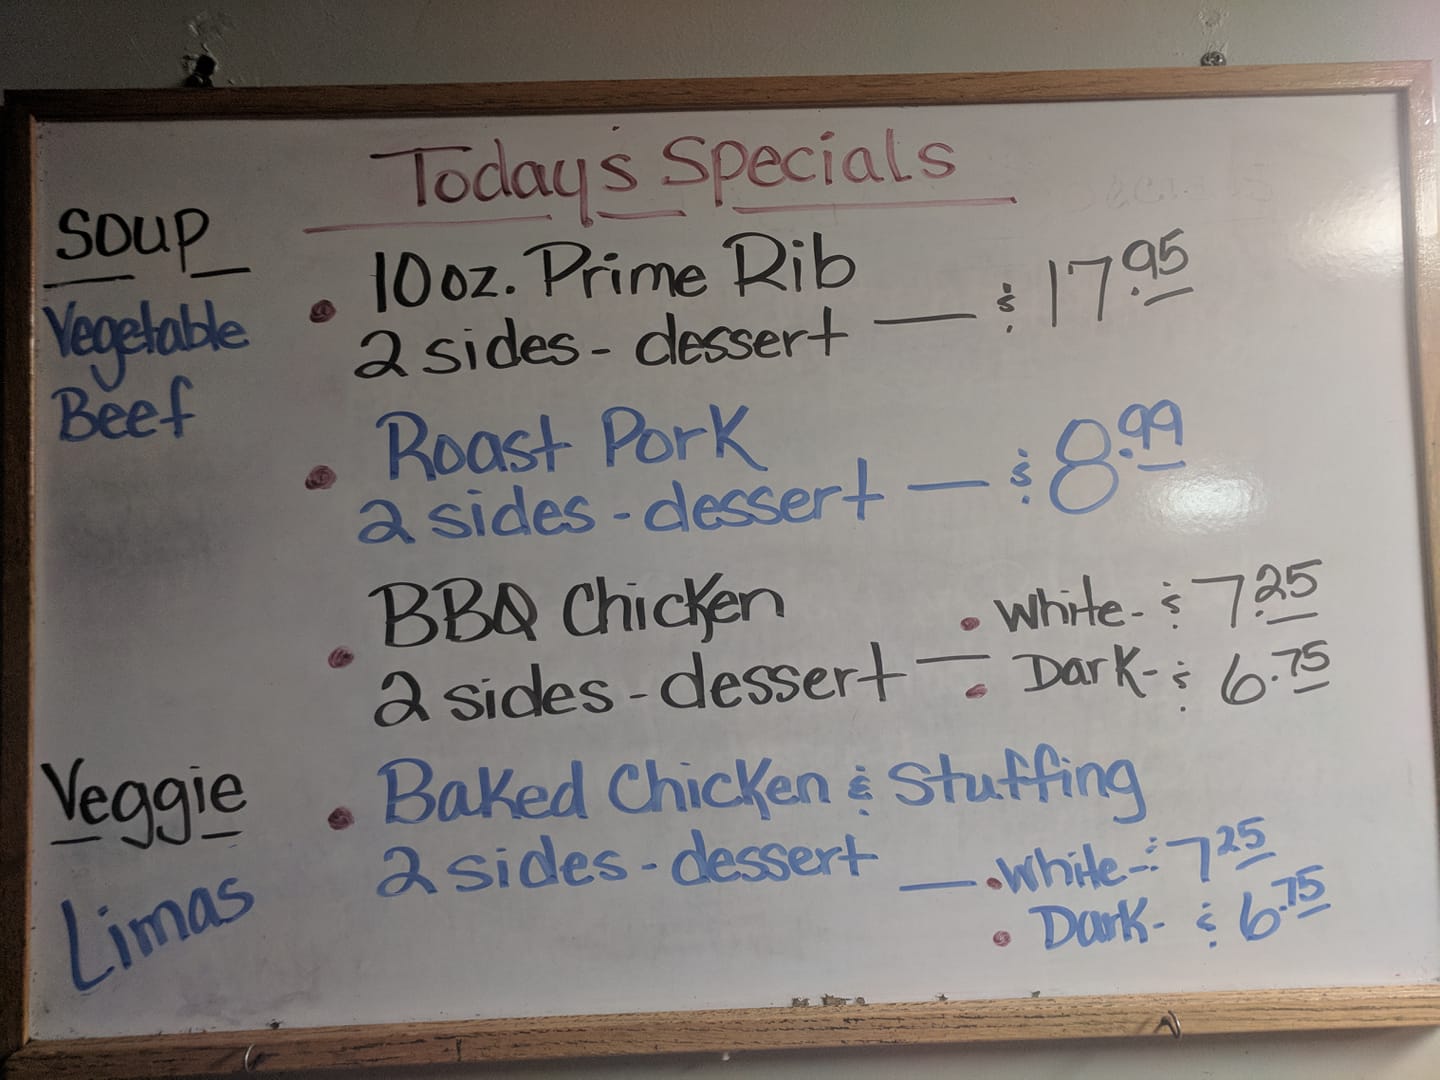 Today's Specials
SOUP
Vegetable
Beef
• 10 oz. Prime Rib
2 sides - dessert — $17.95
• Roast Pork
2 sides - dessert — $8.99
• BBQ Chicken
2 sides - dessert —
• White - $7.25
• Dark - $6.75
Veggie
Limas
• Baked Chicken & Stuffing
2 sides - dessert —
• White - $7.25
• Dark - $6.75